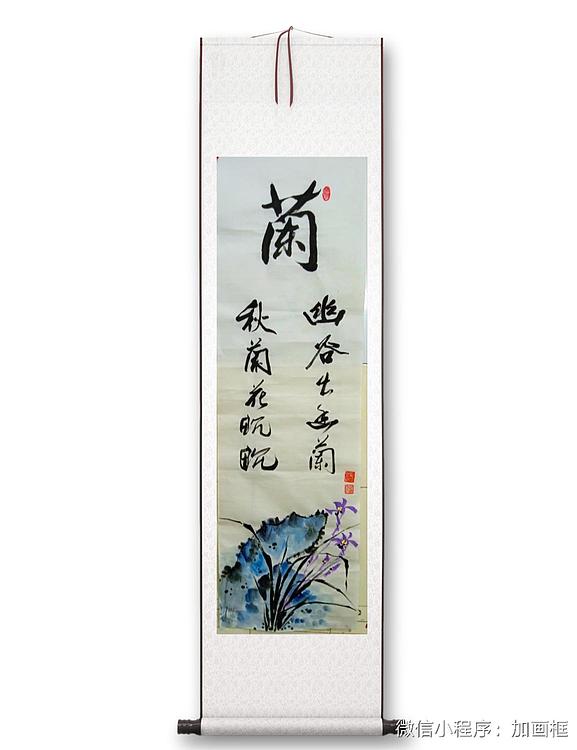 蘭
幽谷出幽蘭
秋蘭花畹畹
微信小程序：加画框